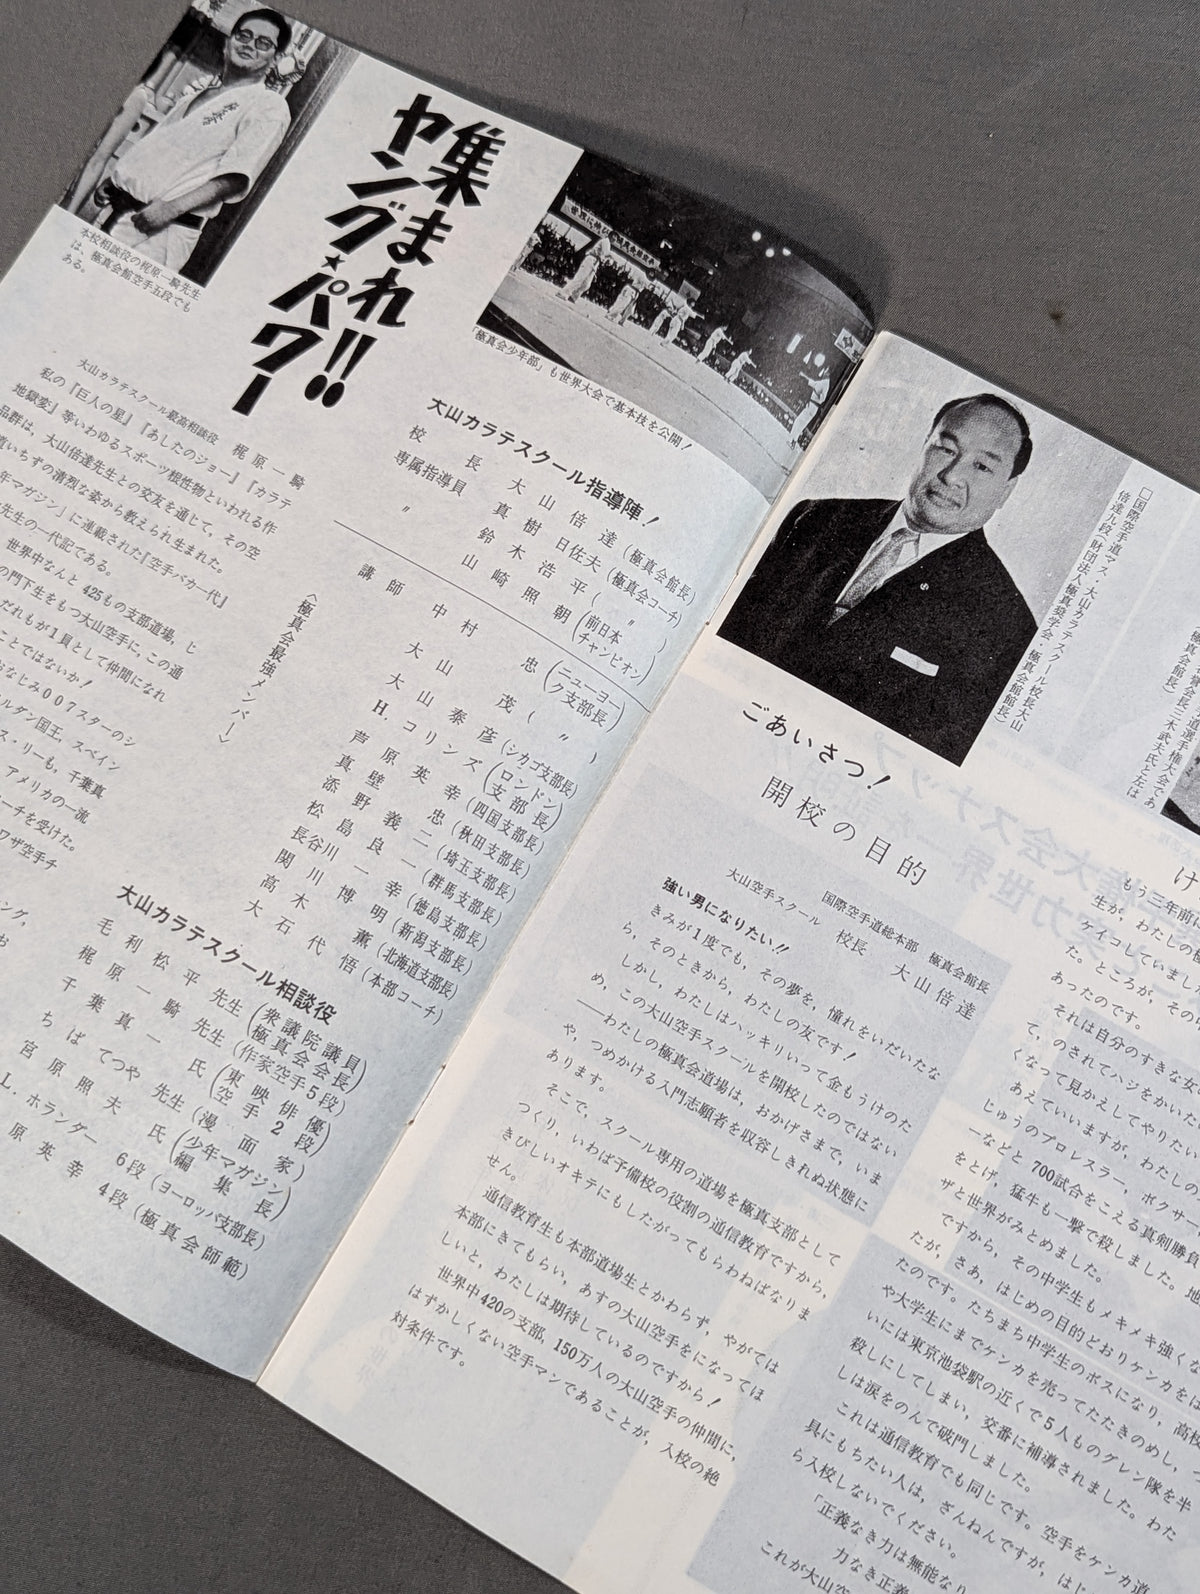 集まれ!!
ヤング★パワー
本校相談役の梶原一騎先生
は、極真会館空手五段でも
ある。
「極真会少年部」も世界大会で基本技を公開!
大山カラテスクール最高相談役　梶原一騎
私の『巨人の星』『あしたのジョー』『カラテ
地獄変』等いわゆるスポーツ根性物といわれる作
品群は、大山倍達先生との交友を通じて、その空
いちずの清烈な姿から教えられ生まれた。
年マガジン」に連載された『空手バカ一代』
先生の一代記である。
世界中なんと425もの支部道場、じ
の門下生をもつ大山空手に、この通
だれもが1員として仲間になれ
ことではないか!
おなじみ007スターのシ
ルダン国王、スペイン
ス・リーも、千葉真
アメリカの一流
ーチを受けた。
ワザ空手チ
大山カラテスクール指導陣!
校長　大山倍達(極真会館長)
専属指導員　真樹日佐夫(極真会コーチ)
〃　鈴木浩平(〃)
山崎照朝(前日本チャンピオン)
〈極真会最強メンバー〉
講師　中村忠(ニューヨーク支部長)
大山茂(〃)
大山泰彦(シカゴ支部長)
H.コリンズ(ロンドン支部長)
芦原英幸(四国支部長)
真壁義忠(秋田支部長)
添野義二(埼玉支部長)
松島良一(群馬支部長)
長谷川一幸(徳島支部長)
関川博明(新潟支部長)
高木薫(北海道支部長)
大石代悟(本部コーチ)
大山カラテスクール相談役
毛利松平先生(衆議院議員 極真会会長)
梶原一騎先生(作家空手5段)
千葉真一氏(東映俳優 空手2段)
ちばてつや先生(漫画家)
宮原照夫氏(少年マガジン編集長)
L.ホランダー 6段(ヨーロッパ支部長)
原英幸 4段(極真会師範)
□国際空手道マス・大山カラテスクール校長大山
倍達九段(財団法人極真奨学会・極真会館館長)
ごあいさつ!
開校の目的
国際空手道総本部　極真会館長
大山空手スクール　校長　大山倍達
強い男になりたい!!
きみが1度でも、その夢を、憧れをいだいたな
ら、そのときから、わたしの友です!
しかし、わたしはハッキリいって金もうけのた
め、この大山空手スクールを開校したのではない
――わたしの極真会道場は、おかげさまで、いま
や、つめかける入門志願者を収容しきれぬ状態に
あります。
そこで、スクール専用の道場を極真支部として
つくり、いわば予備校の役割の通信教育ですから、
きびしいオキテにもしたがってもらわねばなりま
せん。
通信教育生も本部道場生とかわらず、やがては
本部にきてもらい、あすの大山空手をになってほ
しいと、わたしは期待しているのですから!
世界中420の支部、150万人の大山空手の仲間に、
はずかしくない空手マンであることが、入校の絶
対条件です。
もう三年前に
生が、わたしの極
ケイコしていました
た。ところが、その中
あったのです。
それは自分のすきな女
て、のされてハジをかいた
くなって見かえしてやりたい
あえていいますが、わたしの
じゅうのプロレスラー、ボクサー
ーなどと700試合をこえる真剣勝負
をとげ、猛牛も一撃で殺しました。地
ザと世界がみとめました。
ですから、その中学生もメキメキ強くな
たが、さあ、はじめの目的どおりケンカをは
たのです。たちまち中学生のボスになり、高校
や大学生にまでケンカを売ってたたきのめし、つ
いには東京池袋駅の近くで5人ものグレン隊を半
殺しにしてしまい、交番に補導されました。わた
しは涙をのんで破門しました。
これは通信教育でも同じです。空手をケンカ道
具にもちたい人は、ざんねんですが、はじ
ら入校しないでください。
「正義なき力は無能なり
力なき正義
これが大山空